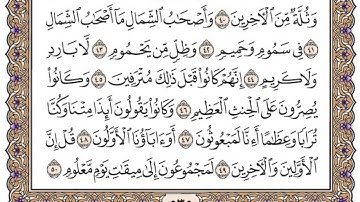 وَثُلَّةٌ مِّنَ ٱلْـَٔاخِرِينَ ٤٠ وَأَصْحَٰبُ ٱلشِّمَالِ مَآ أَصْحَٰبُ ٱلشِّمَالِ
٤١ فِى سَمُومٍ وَحَمِيمٍ ٤٢ وَظِلٍّ مِّن يَحْمُومٍ ٤٣ لَّا بَارِدٍ
وَلَا كَرِيمٍ ٤٤ إِنَّهُمْ كَانُوا۟ قَبْلَ ذَٰلِكَ مُتْرَفِينَ ٤٥ وَكَانُوا۟
يُصِرُّونَ عَلَى ٱلْحِنثِ ٱلْعَظِيمِ ٤٦ وَكَانُوا۟ يَقُولُونَ أَئِذَا مِتْنَا وَكُنَّا
تُرَابًا وَعِظَٰمًا أَءِنَّا لَمَبْعُوثُونَ ٤٧ أَوَءَابَآؤُنَا ٱلْأَوَّلُونَ ٤٨ قُلْ إِنَّ
ٱلْأَوَّلِينَ وَٱلْـَٔاخِرِينَ ٤٩ لَمَجْمُوعُونَ إِلَىٰ مِيقَٰتِ يَوْمٍ مَّعْلُومٍ ٥٠